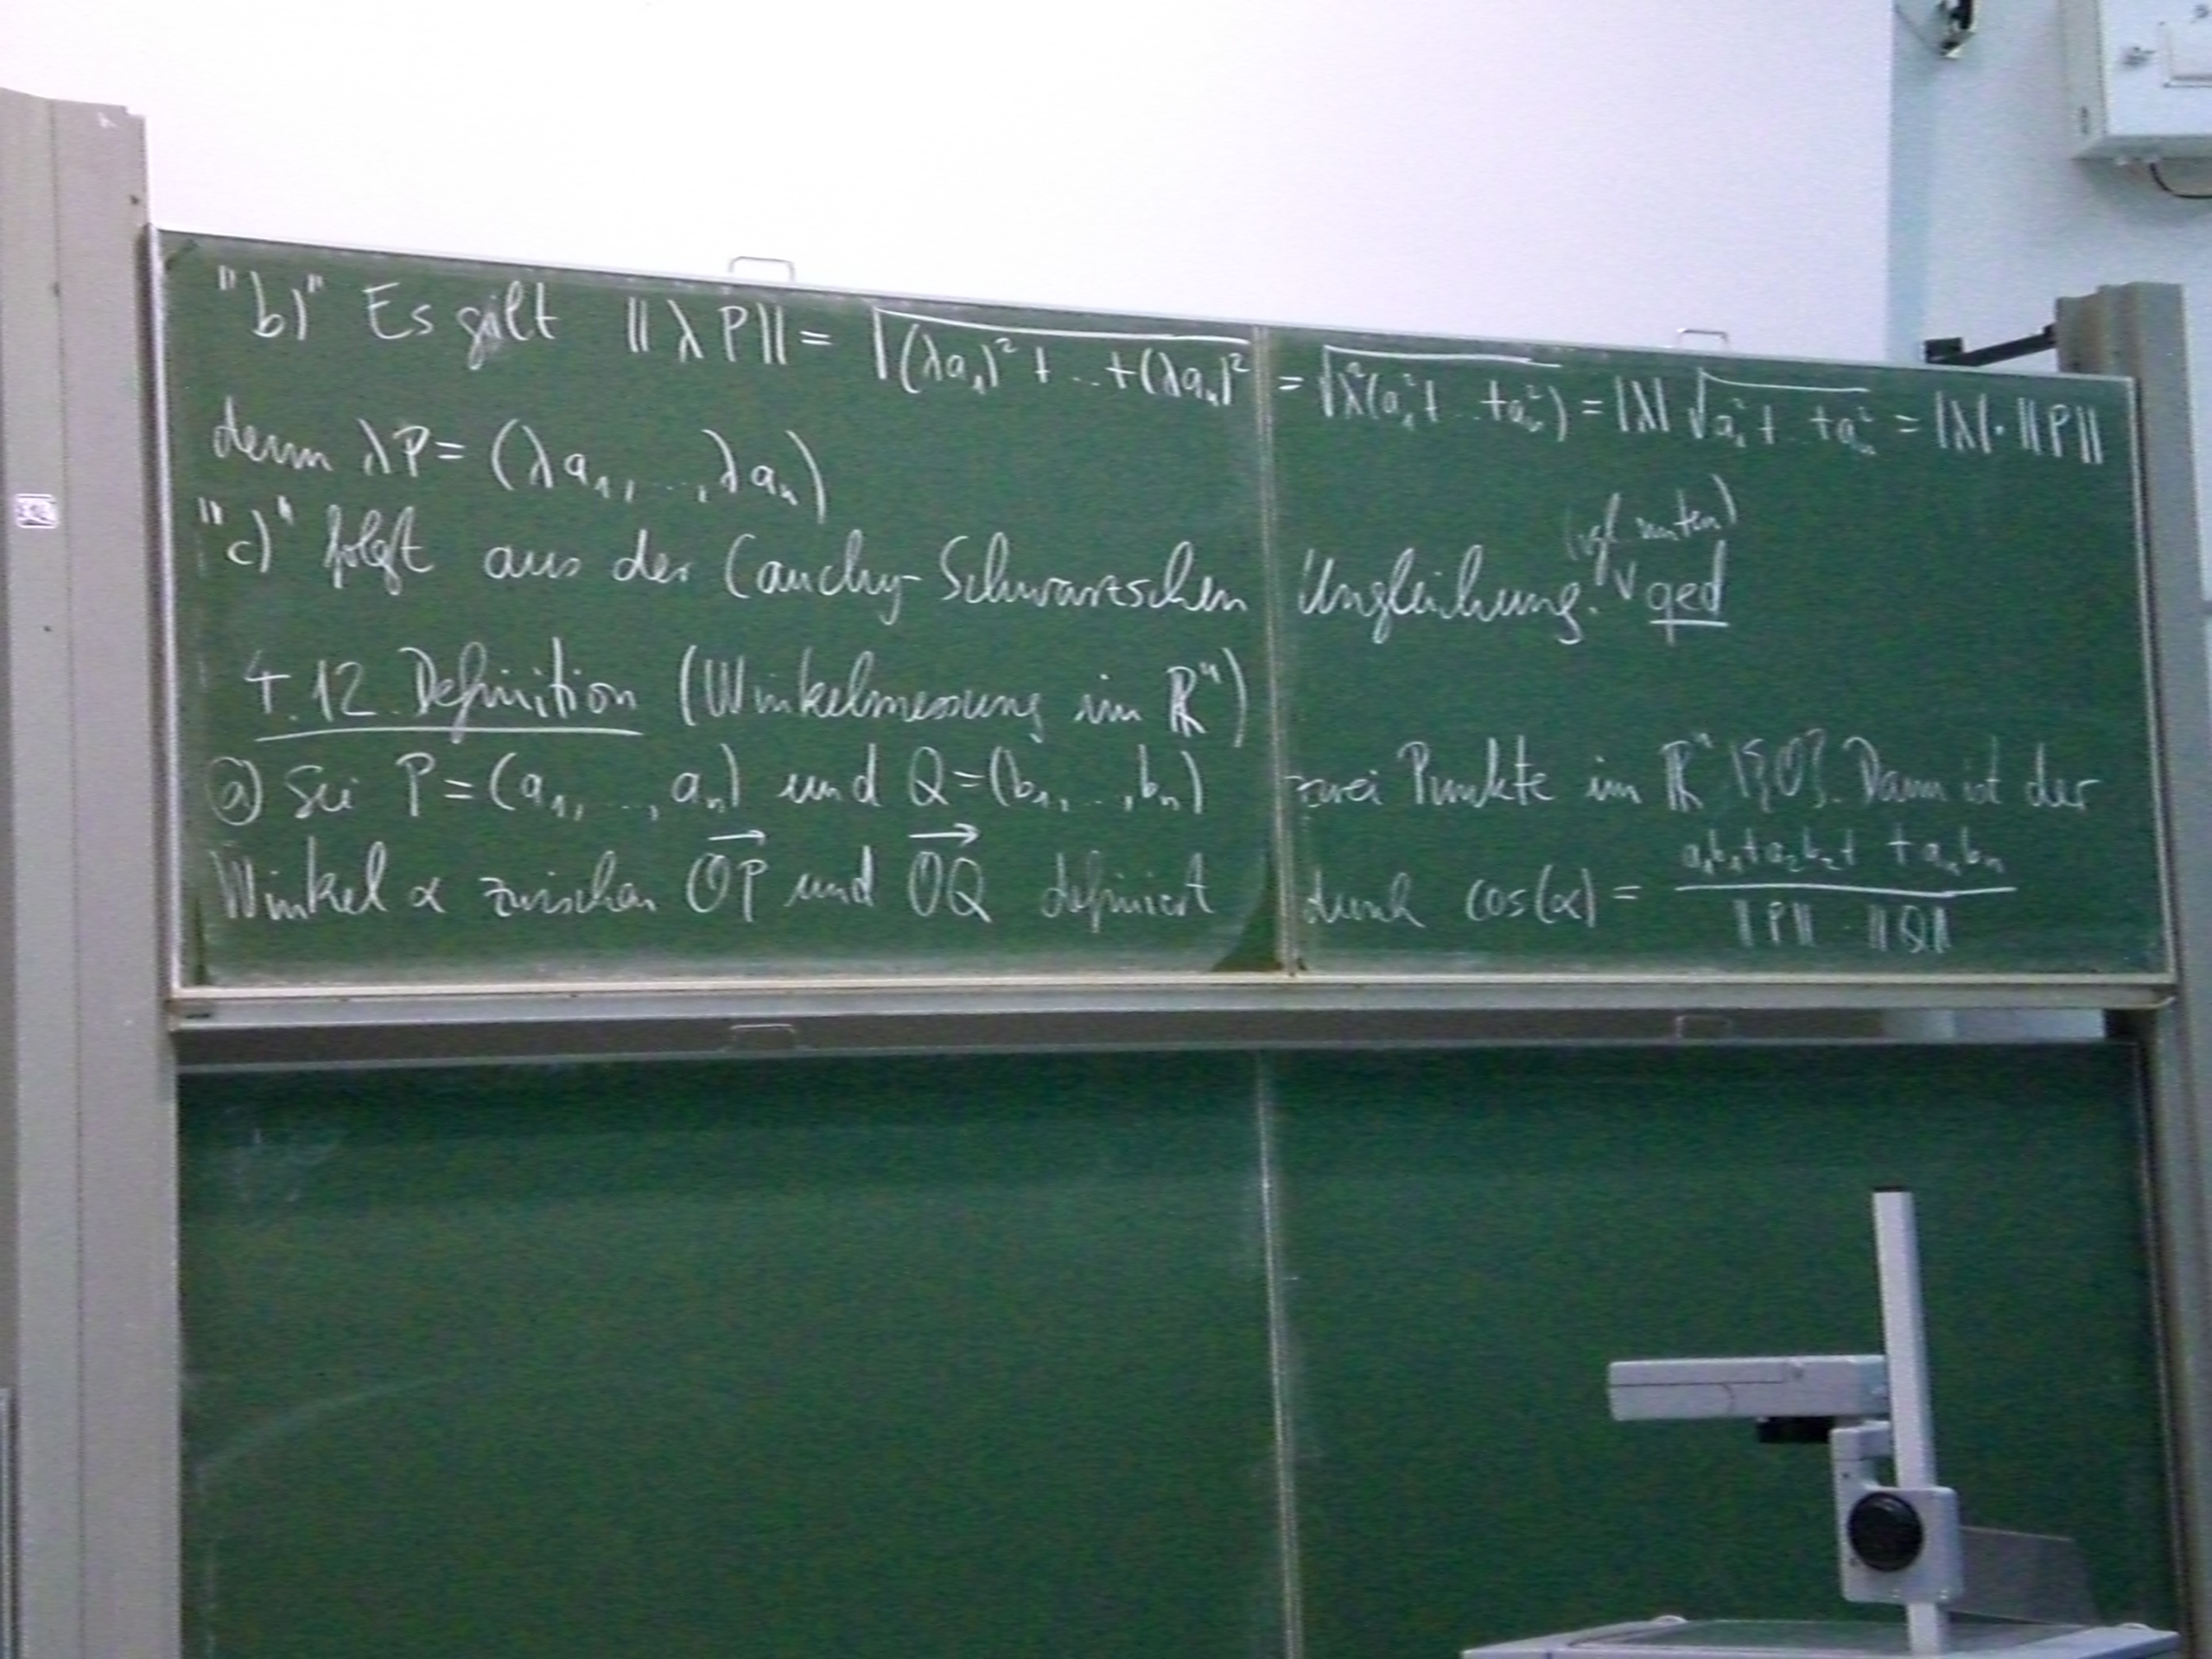 "b)" Es gilt ||λP|| = √(λa₁)² + ... + (λaₙ)² = √λ²(a₁² + ... + aₙ²) = |λ| √a₁² + ... + aₙ² = |λ| · ||P||
denn λP = (λa₁, ..., λaₙ)
(vgl. unten)
"c)" folgt aus der Cauchy-Schwarzschen Ungleichung. ∨ qed
4.12. Definition (Winkelmessung im ℝⁿ)
a) Sei P = (a₁, ..., aₙ) und Q = (b₁, ..., bₙ) zwei Punkte im ℝⁿ \ {O}. Dann ist der
Winkel α zwischen OP⃗ und OQ⃗ definiert durch cos(α) = a₁b₁ + a₂b₂ + + aₙbₙ / ||P|| · ||Q||